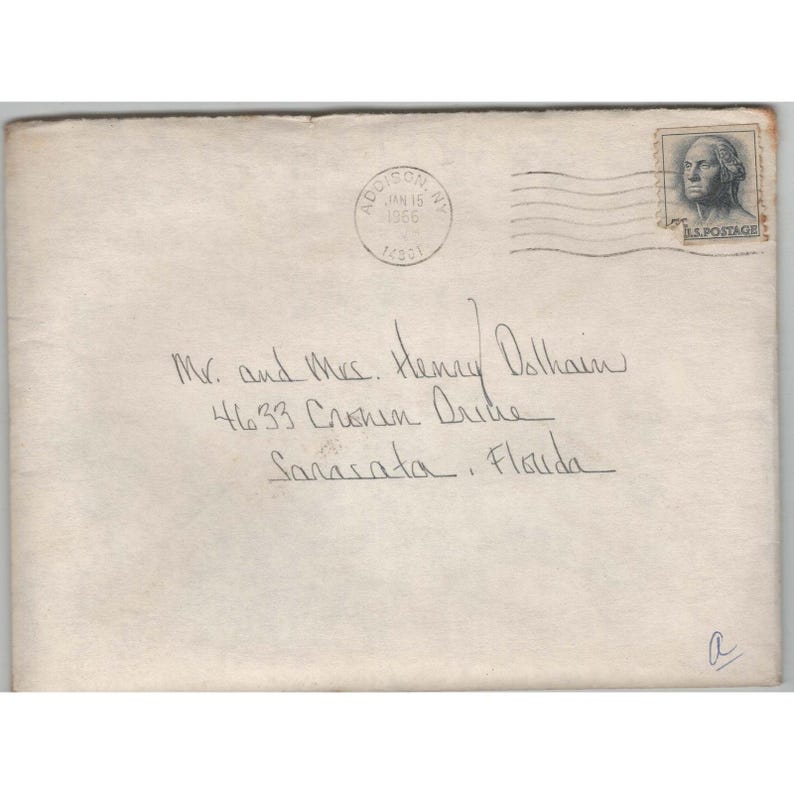 ADDISON, NY
JAN 15
1966
14801
U.S. POSTAGE
Mr. and Mrs. Henry Dolhain
4633 Cronin Drive
Sarasata, Florida
a